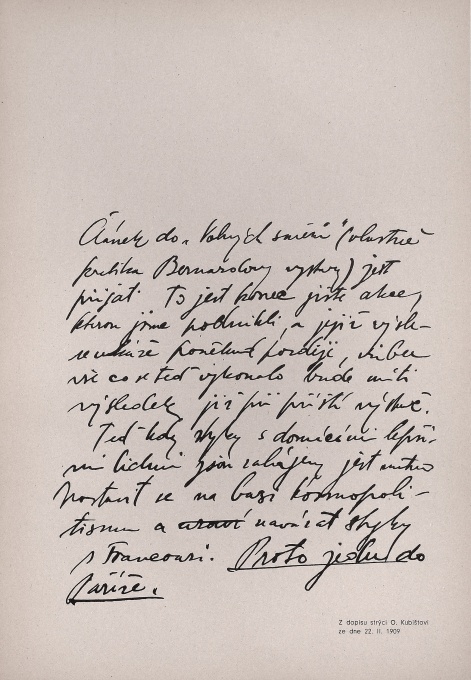 Článek do „Volných směrů" (vlastně
kritika Bernardovy výstavy) jest
přijat. To jest konec jisté akce,
kterou jsme podnikli, a jejíž výsle-
ukáže poněkud později,
vše co se teď vykonalo bude míti
výsledek, již při příští výstavě.
Teď kdy styky s domácími lepší-
mi lidmi jsou zahájeny jest nutno
postavit se na basi kosmopoli-
tismu a navázat styky
s Francouzi. Proto jedu do
Paříže.
Z dopisu strýci O. Kubištovi
ze dne 22. II. 1909